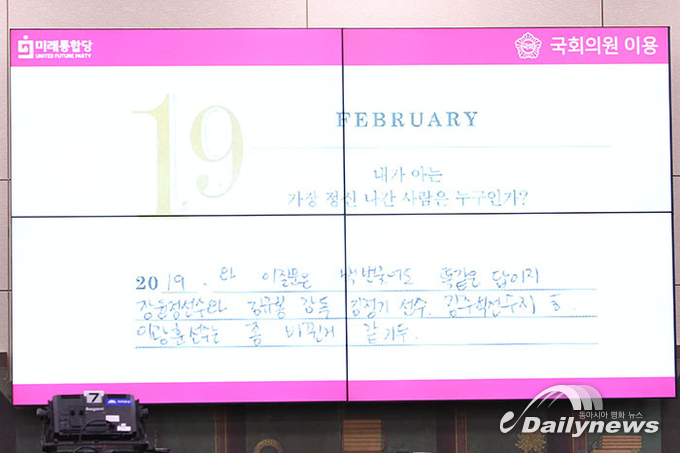 미래통합당
UNITED FUTURE PARTY
국회의원 이용
19
FEBRUARY
내가 아는
가장 정신 나간 사람은 누구인가?
2019. 와 이질문은 백번물어도 똑같은 답이지
장윤정선수와 김규봉 감독 김정기 선수. 김주혁선수지 ㅎ.
이광훈선수는 좀 바뀐거 같기두.
7
Ikegami
동아시아 평화 뉴스
eDailynews